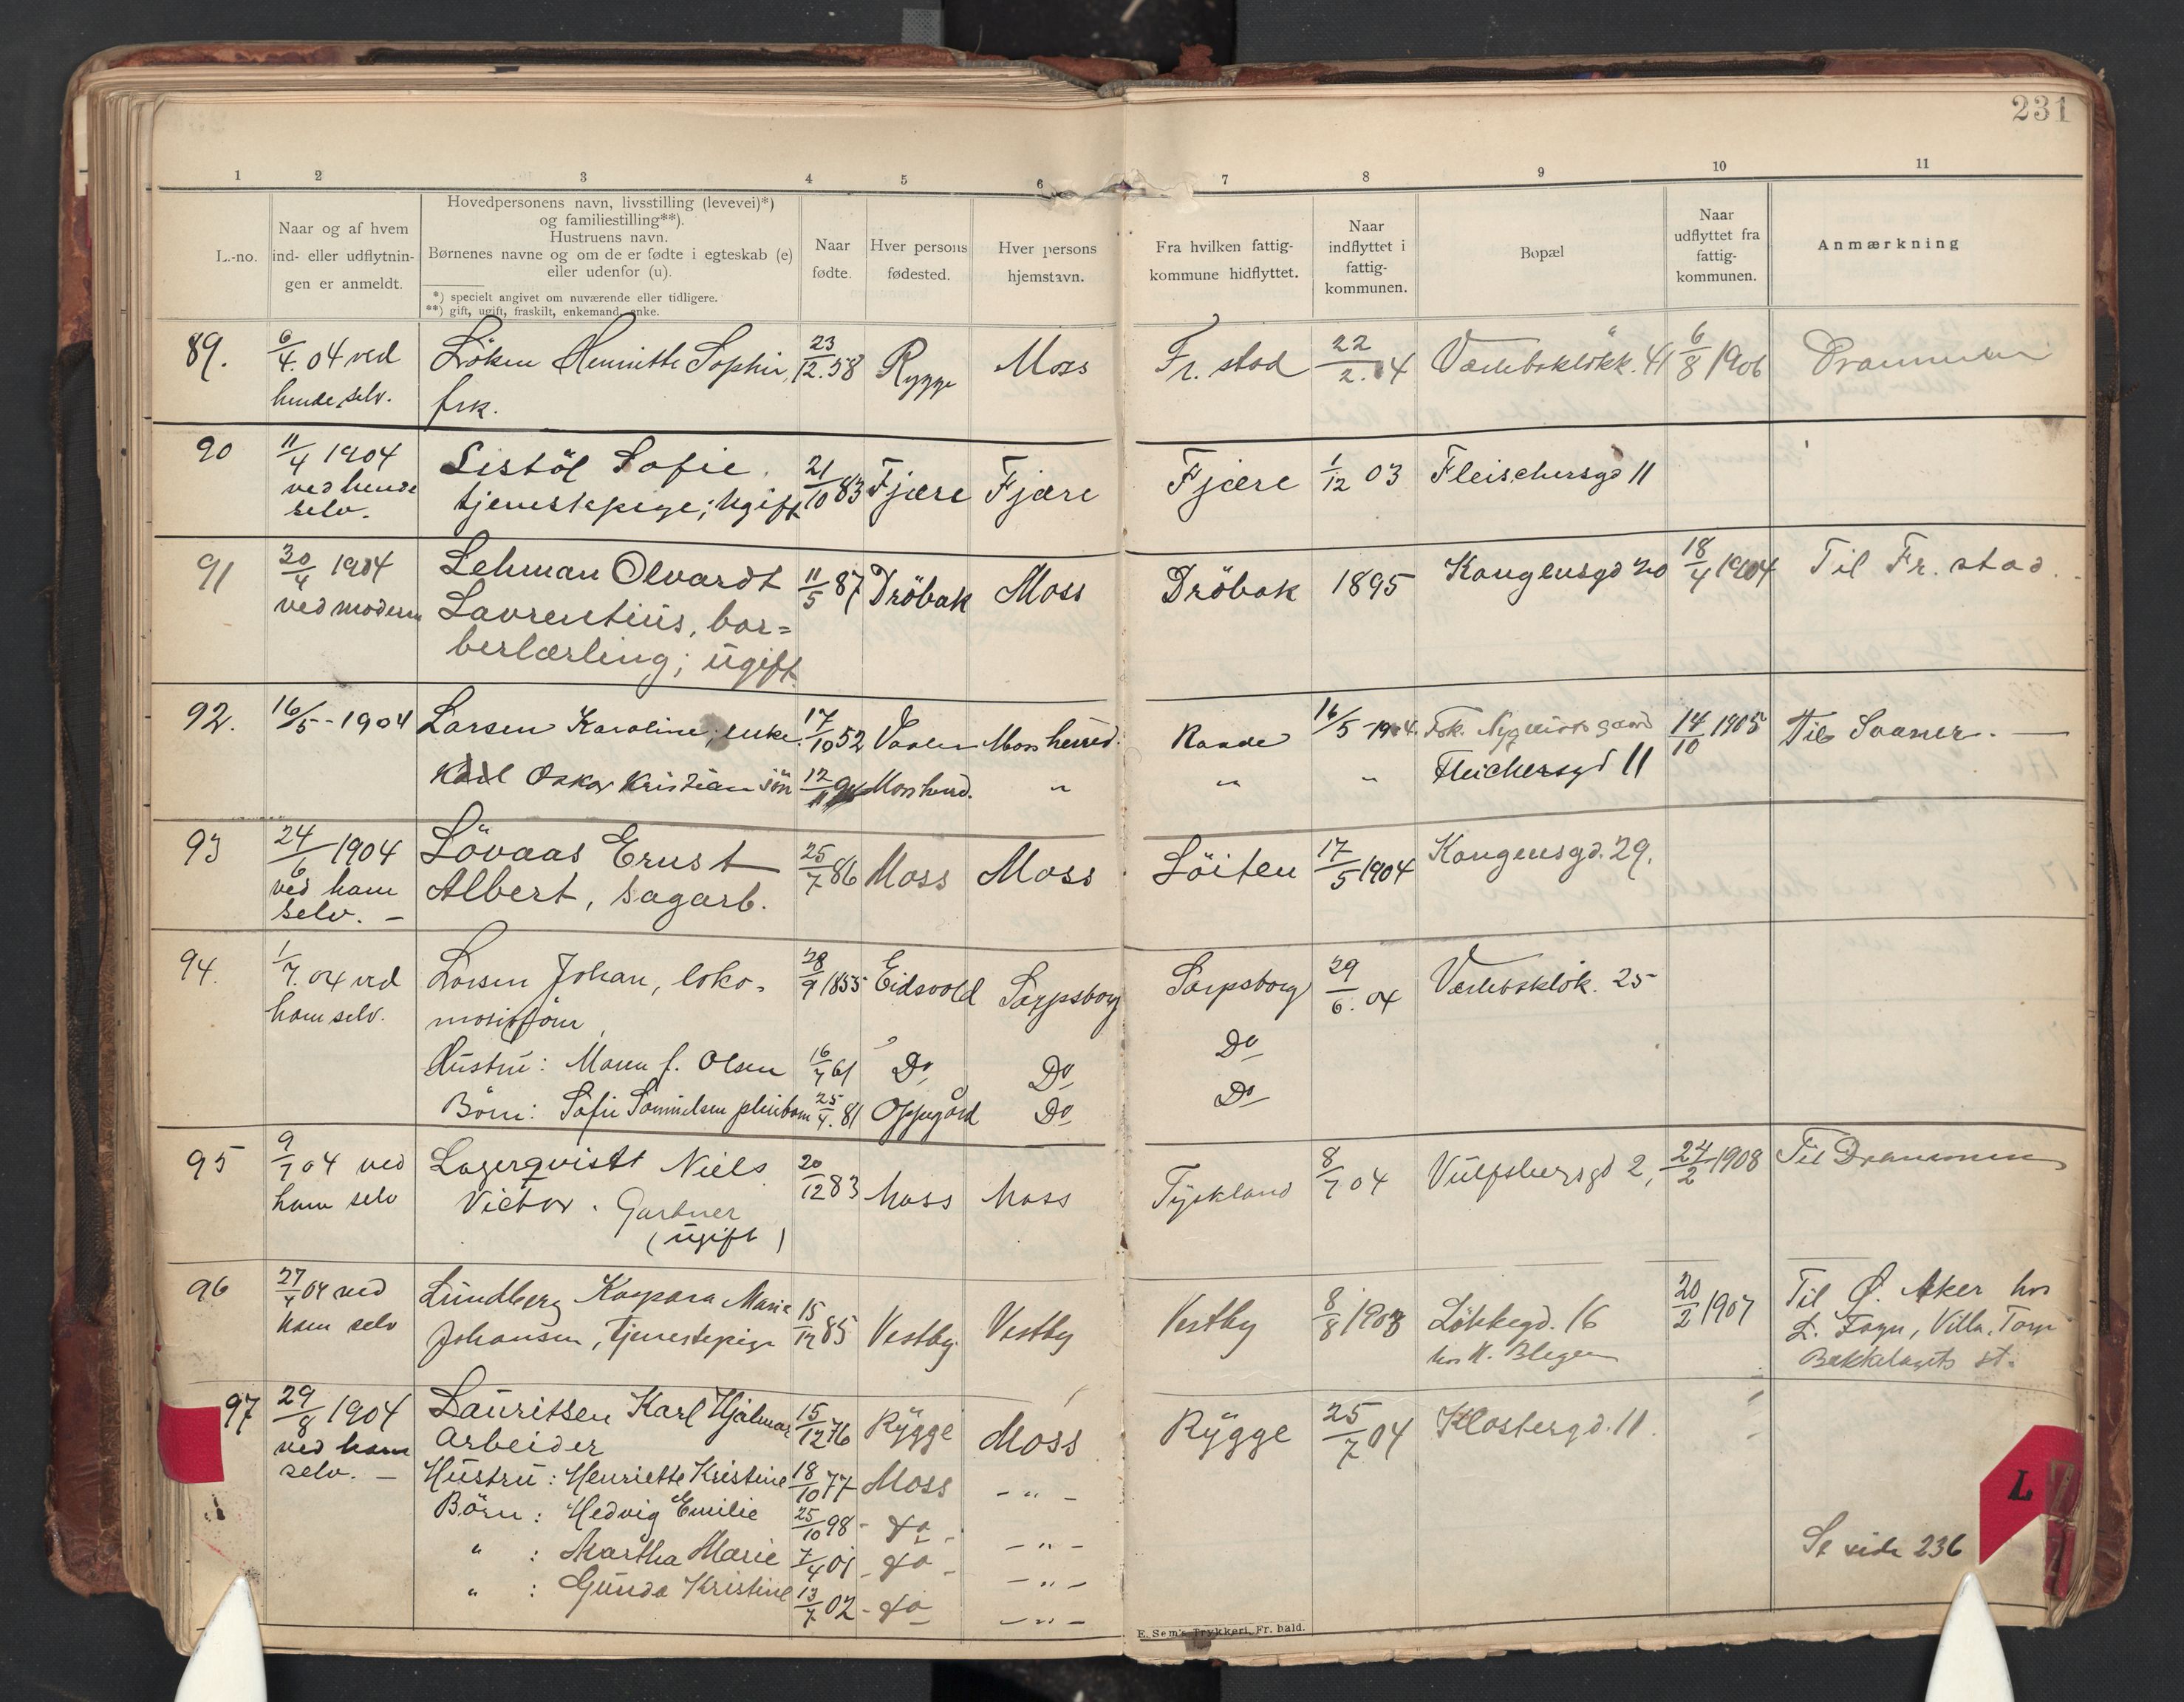 231
1 2 3 4 5 6 7 8 9 10 11
L.-no.
Naar og af hvem
ind- eller udflytnin-
gen er anmeldt.
Hovedpersonens navn, livsstilling (levevei)*)
og familiestilling**).
Hustruens navn.
Børnenes navne og om de er fødte i egteskab (e)
eller udenfor (u).
*) specielt angivet om nuværende eller tidligere.
**) gift, ugift, fraskilt, enkemand, enke.
Naar
fødte.
Hver persons
fødested.
Hver persons
hjemstavn.
Fra hvilken fattig-
kommune hidflyttet.
Naar
indflyttet i
fattig-
kommunen.
Bopæl
Naar
udflyttet fra
fattig-
kommunen.
Anmærkning
89. 6/4. 04 ved Löken Henriette Sophie, 23/12.58 Rygge Moss Fr. stad 22/2. 04 41 6/8 1906 Drammen
hende selv. frk.
90 11/4 1904 Listöl Sofie. 21/10 83 Fjære Fjære Fjære 1/12 03 Fleischersgd 11
ved hende tjenestepige; Ugift
selv.
91 30/4 1904 Lehman Olvardt 11/5 87 Dröbak Moss Dröbak 1895 Kongensgd 20 18/4 1904 Til Fr. stad.
ved modern Lavrentius, bar=
berlærling; ugift.
92. 16/5 - 1904 Larsen Karoline; enke. 17/10 52 Vaaler Moss herred. Raade 16/5 - 1904. 14/10 1905 Til Saaner. —
Karl Oskar Kristian sön 12/11 Moss herred. " " " Fleichersgd 11
93 24/6 1904 Lövaas Ernst 25/7 86 Moss Moss Löiten 17/5 1904 Kongensgd. 29.
ved ham Albert, sagarb.
selv. –
94. 1/7. 04 ved Larsen Johan, loko- 28/9 1855 Eidsvold Sarpsborg Sarpsborg 29/6. 04 25
ham selv.
Hustru: Maren f. Olsen 16/7 61 Do Do Do
Börn: Sofie Samuelsen pleiebarn 25/4. 81 Oppegård Do Do
95 9/7 04 ved Lagerqvist Niels 20/12 83 Moss Moss Tyskland 8/7 04 Vulfsbergsgd 2, 24/2 1908 Til Drammen
ham selv Victor. Gartner
(ugift)
96 27/7 04 ved Lundberg Kaspara Marie 15/12 85 Vestby Vestby Vestby 8/8 1903 Lökkegd. 16 20/2 1907 Til Ø. Aker hos
ham selv Johansen, tjenestepige hos H. Blegen Villa.
Bækkelagets st.
97 29/8 1904 Lauritsen Karl Hjalmar 15/12 76 Rygge Moss Rygge 25/7 04 Klostergd. 11.
ved ham Arbeider
selv. – Hustru: Henriette Kristine 18/10 77 Moss – " –
Börn: Hedvig Emilie 25/10 98 – do – – " –
" : Martha Marie 7/4 01 – do – – " –
" : Gunda Kristine 13/7 02 – do – " –
Se side 236
L
E. Sem's Trykkeri, Fr. hald.